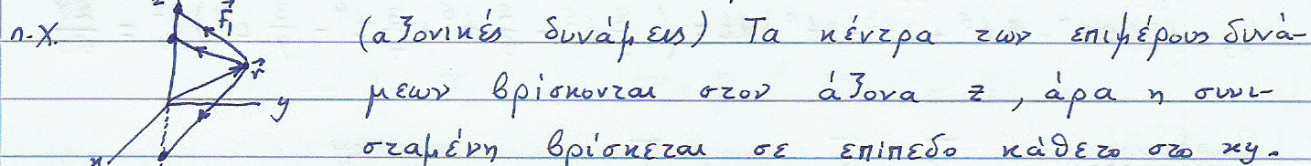 π.χ. (αξονικές δυνάμεις) Τα κέντρα των επιμέρους δυνά-
μεων βρίσκονται στον άξονα z, άρα η συνι-
σταμένη βρίσκεται σε επίπεδο κάθετο στο xy.
z
f₁
r
y
x